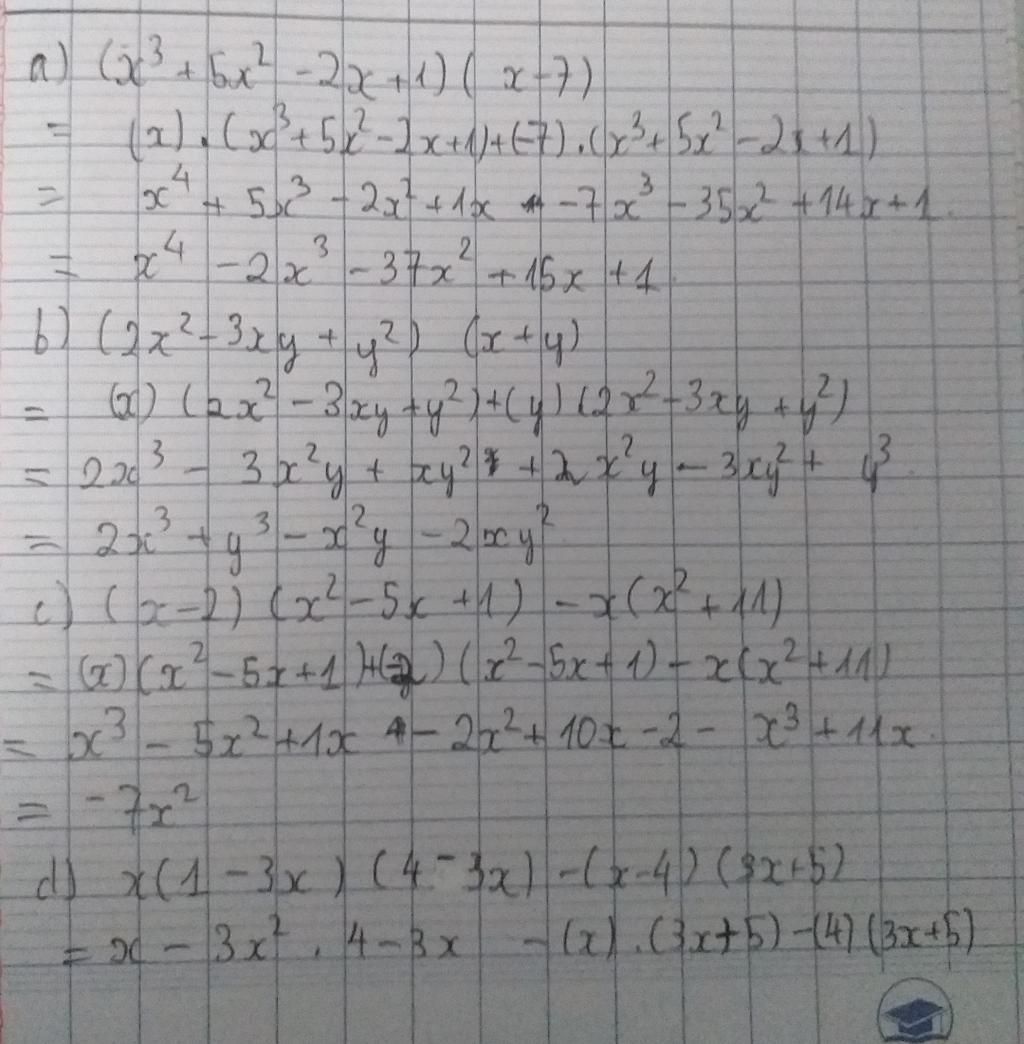 a) (x³ + 5x² - 2x + 1) ( x - 7)
= (x) . (x³ + 5x² - 2x + 1) + (-7) . (x³ + 5x² - 2x + 1)
= x⁴ + 5x³ - 2x² + 1x - 7x³ - 35x² + 14x + 1
= x⁴ - 2x³ - 37x² + 15x + 1
b) (2x² - 3xy + y²) (x + y)
= (x) (2x² - 3xy + y²) + (y) (2x² - 3xy + y²)
= 2x³ - 3x²y + xy² + 2x²y - 3xy² + y³
= 2x³ + y³ - x²y - 2xy²
c) (x - 2) (x² - 5x + 1) - x(x² + 11)
= (x) (x² - 5x + 1) + (-2) (x² - 5x + 1) - x(x² + 11)
= x³ - 5x² + 1x - 2x² + 10x - 2 - x³ + 11x
= -7x²
d) x(1 - 3x) (4 - 3x) - (x - 4) (3x + 5)
= x - 3x² . 4 - 3x - (x) . (3x + 5) - (4) (3x + 5)